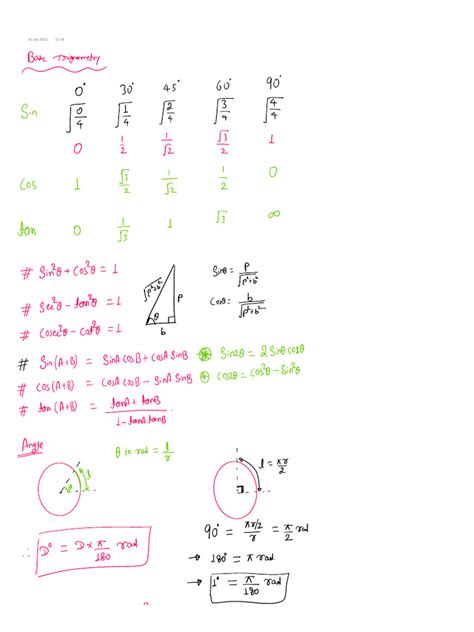 Basic Trigometry
0° 30° 45° 60° 90°
Sin √(0/4) √(1/4) √(2/4) √(3/4) √(4/4)
0 1/2 1/√2 √3/2 1
Cos 1 √3/2 1/√2 1/2 0
tan 0 1/√3 1 √3 ∞
# Sin²θ + Cos²θ = 1
# Sec²θ - tan²θ = 1
# Cosec²θ - Cot²θ = 1
√(p²+b²) p θ b
Sinθ = p/√(p²+b²)
Cosθ = b/√(p²+b²)
# Sin(A+B) = SinA CosB + CosA SinB Sin2θ = 2 Sinθ Cosθ
# Cos(A+B) = CosA CosB - SinA SinB Cos2θ = Cos²θ - Sin²θ
# tan(A+B) = (tanA + tanB)/(1 - tanA tanB)
Angle
θ in rad = l/r
θ l
l = πr/2
90° = (πr/2)/r = π/2 rad
→ 180° = π rad
→ 1° = π/180 rad
∴ D° = D × π/180 rad